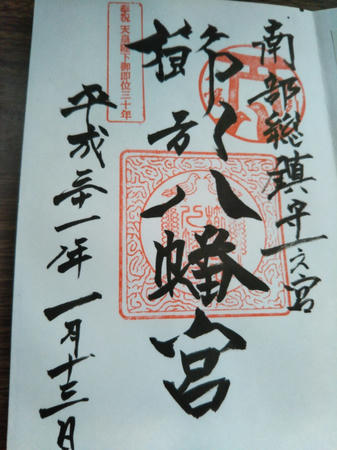 南部総鎮守一之宮
八幡宮
奉祝 天皇陛下御即位三十年
平成卅一年一月十三日